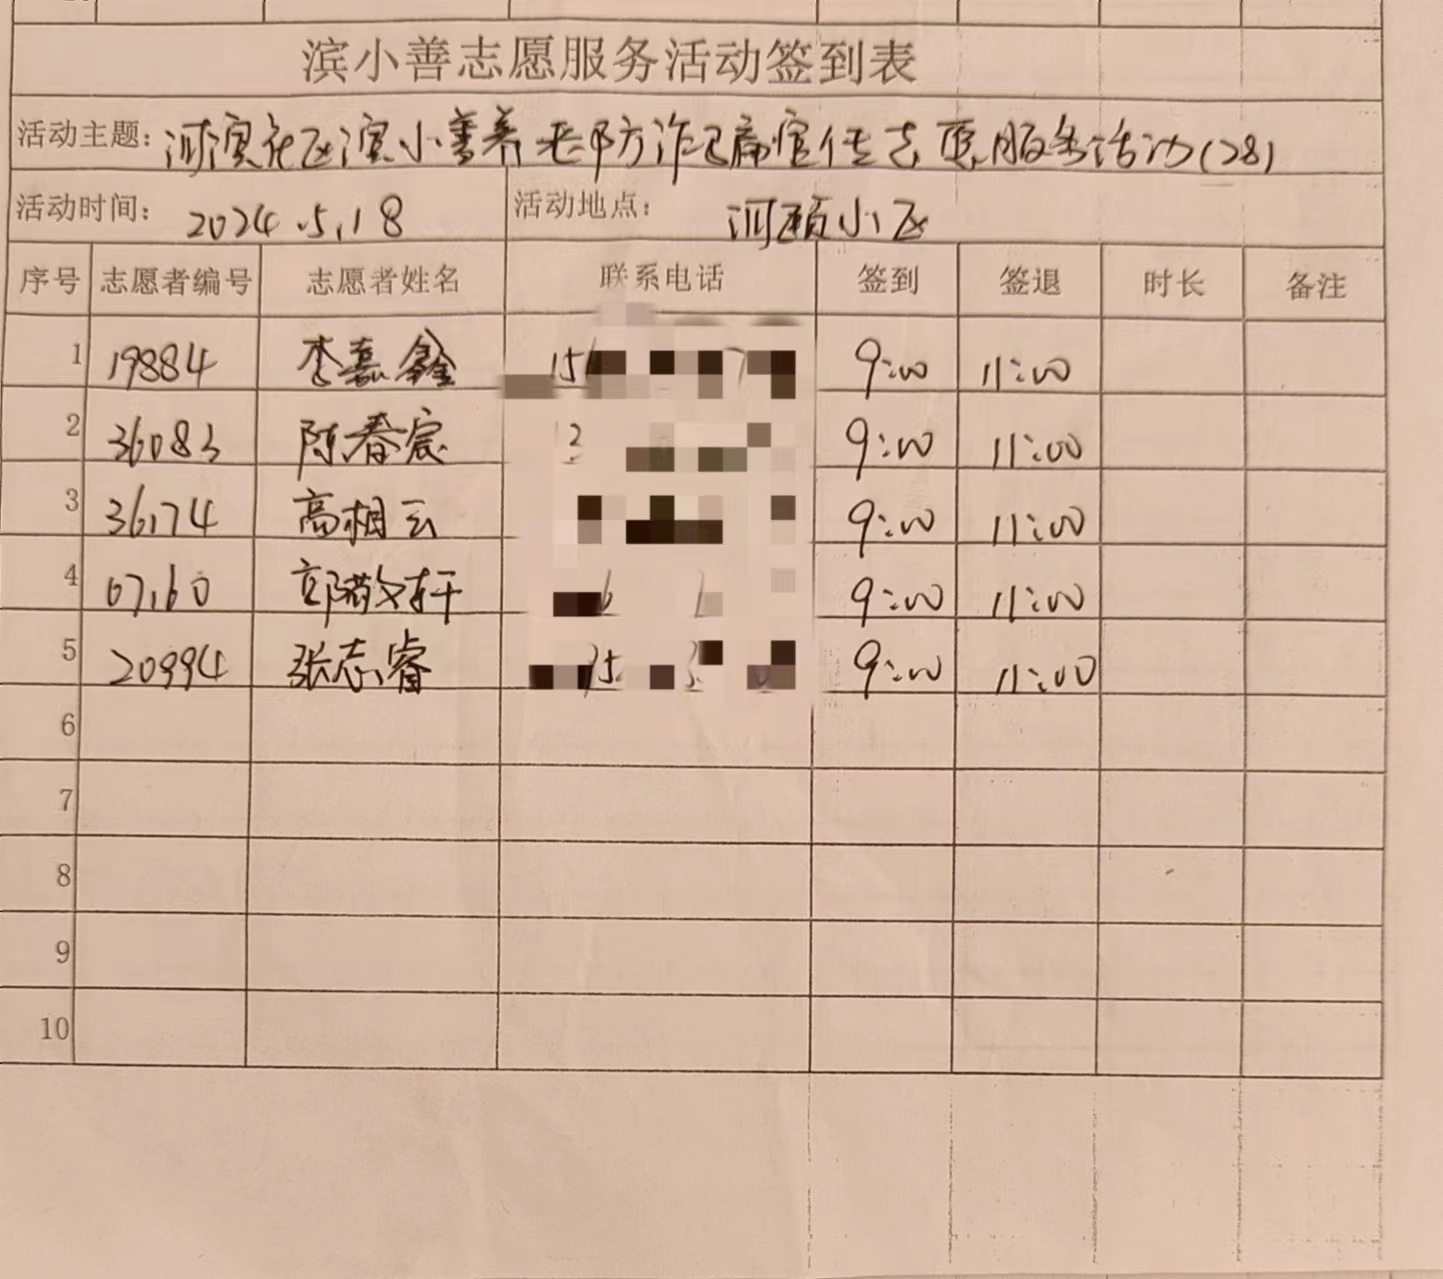 滨小善志愿服务活动签到表
活动主题: 河滨社区滨小善养老防诈骗宣传志愿服务活动(28)
活动时间: 2024.5.18 活动地点: 河颐小区
序号 志愿者编号 志愿者姓名 联系电话 签到 签退 时长 备注
1 19884 李嘉鑫 9:00 11:00
2 36083 陈春宸 9:00 11:00
3 36174 高相云 9:00 11:00
4 07160 9:00 11:00
5 20994 张志睿 9:00 11:00
6
7
8
9
10